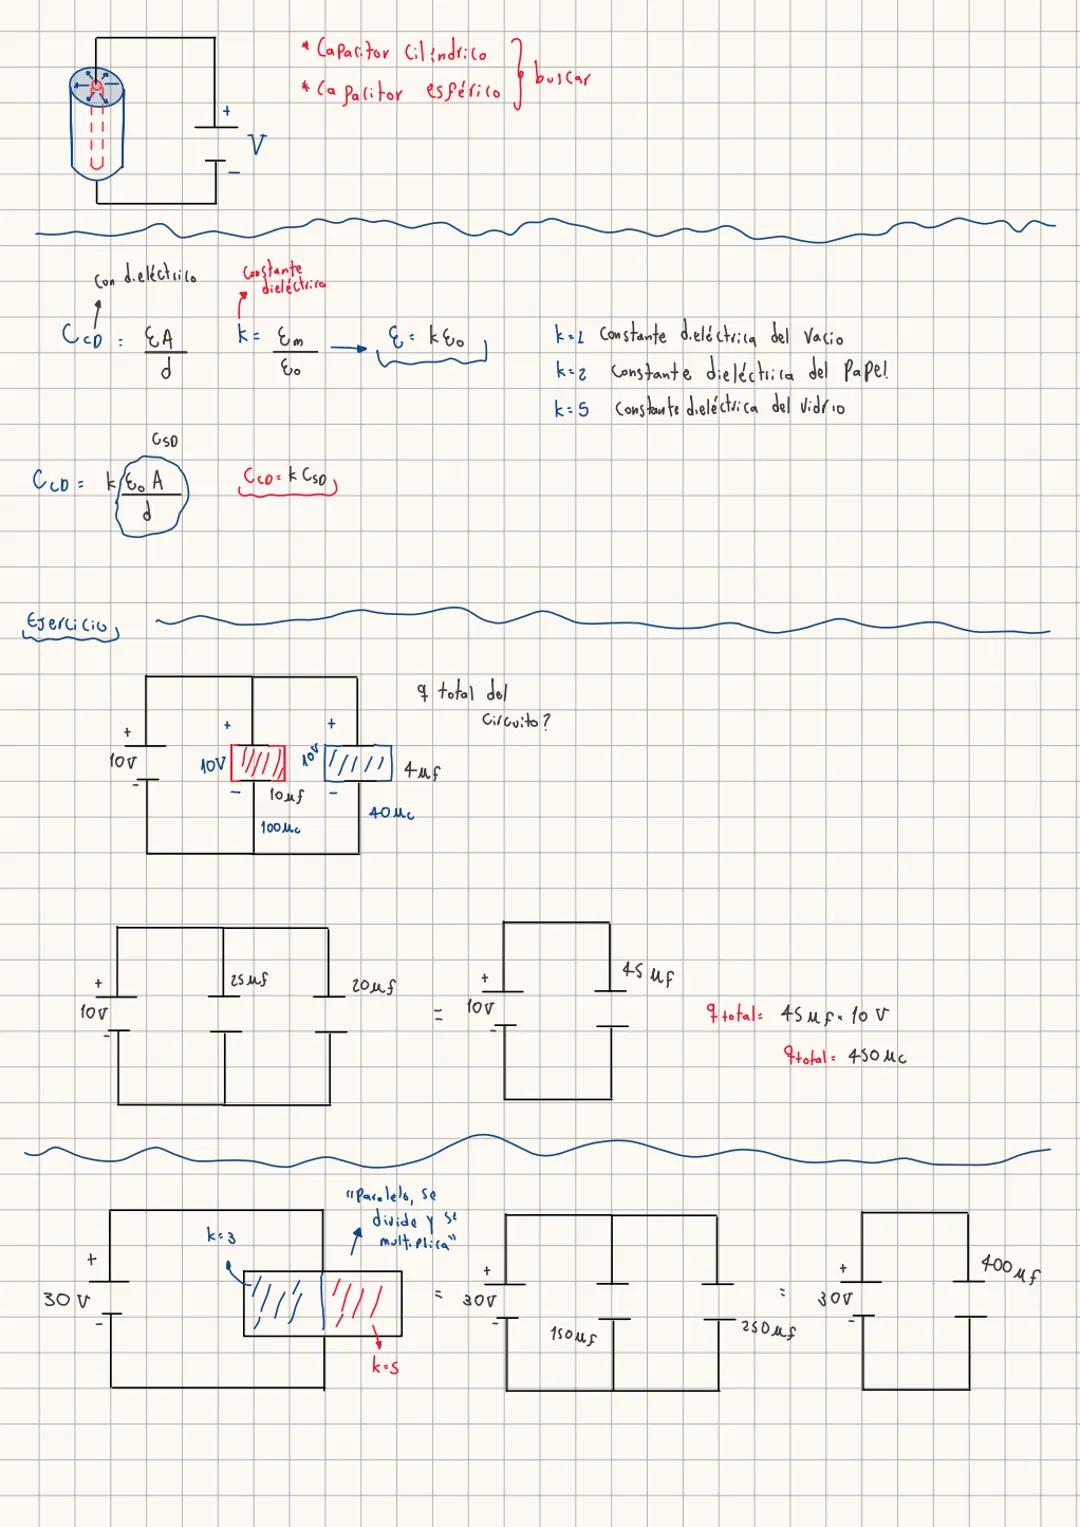 * Capacitor Cilíndrico
* Capacitor esférico
buscar
+
V
-
Con dieléctrico
Constante
dieléctrica
C_CD = εA/d
k = εm/ε₀ → ε = kε₀
k=1 Constante dieléctrica del Vacio
k=2 Constante dieléctrica del Papel
k=5 Constante dieléctrica del vidrio
CSD
C_CD = k ε₀ A/d
C_CD = k C_SD
Ejercicio
q total del
Circuito?
+ + +
10V 10V 10V 4μf
- - -
10μf
100μc
40μc
+ 25μf 20μf
10V
-
=
+ 45μf
10V
-
q total = 45μf · 10V
q total = 450μc
"Paralelo, se
divide y se
multiplica"
k=3
+
30V
-
k=5
=
+
30V
-
150μf
250μf
=
+
30V
-
400μf